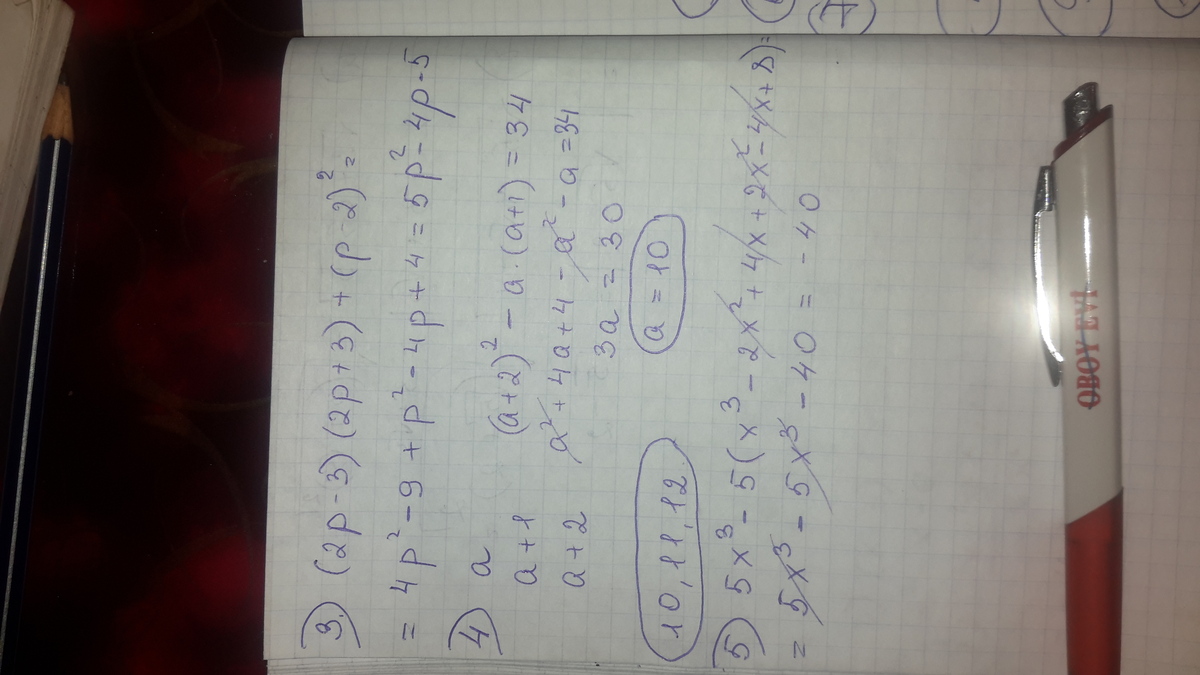 3) (2p-3)(2p+3)+(p-2)² =
= 4p²-9+p²-4p+4=5p²-4p-5
4) a (a+2)² - a·(a+1) = 34
a+1 a²+4a+4-a²-a=34
a+2 3a = 30
10, 11, 12 a = 10
5) 5x³-5(x³-2x²+4x+2x²-4x+8)=
= 5x³-5x³-40=-40
OBOY EVİ